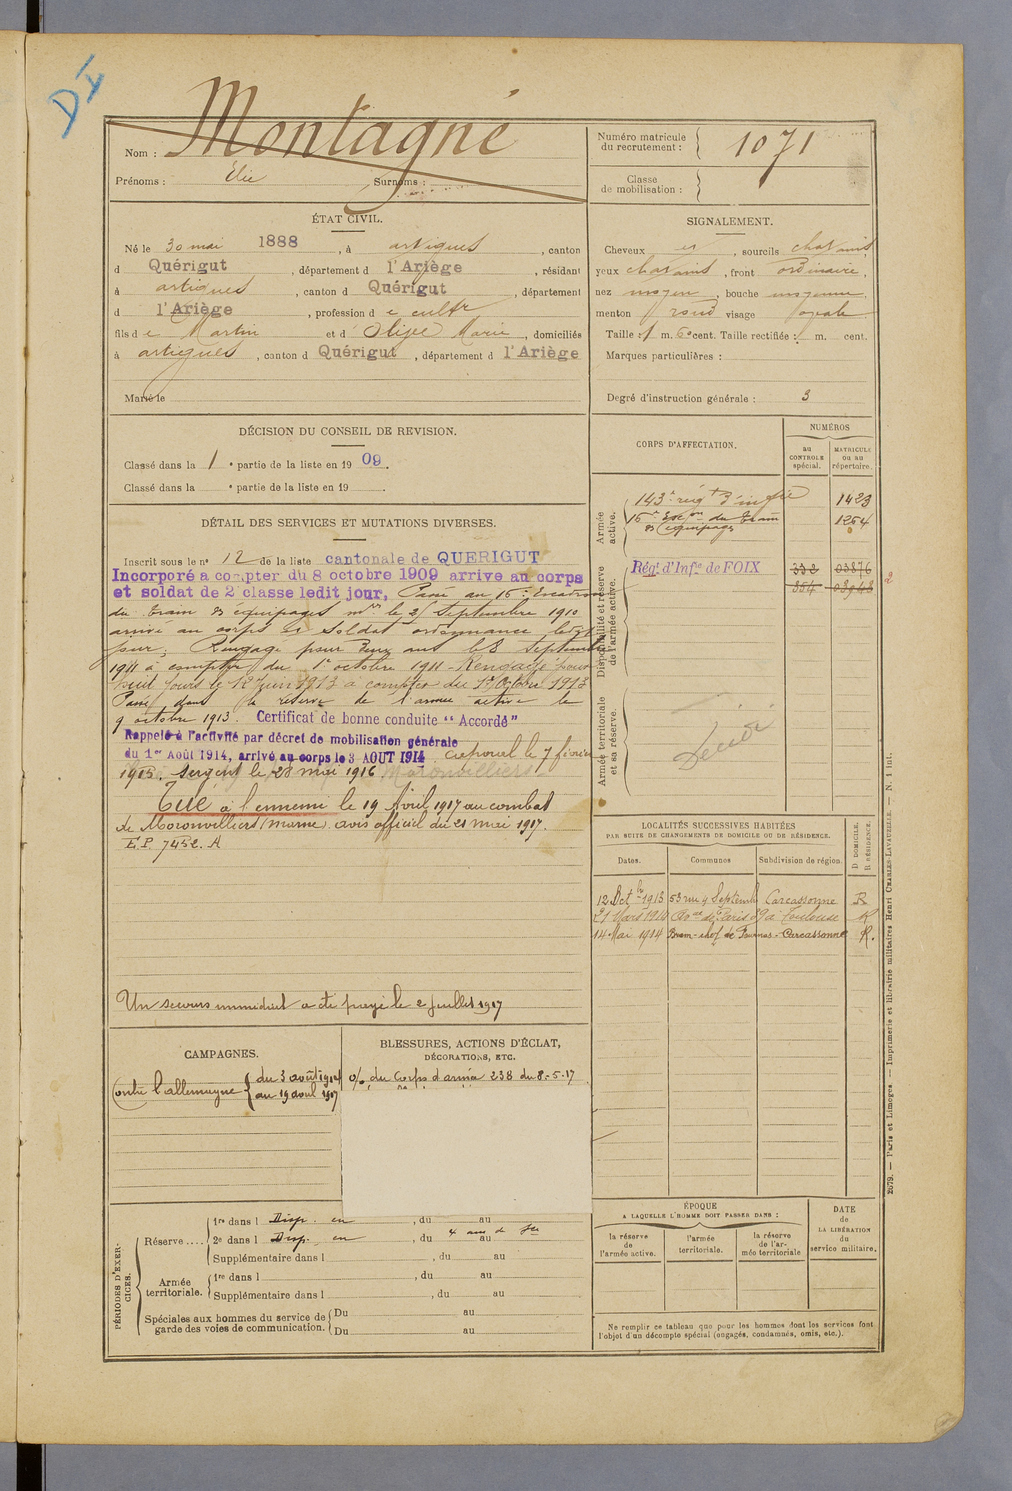 DI
Nom : Montagné
Prénoms : Élie Surnoms :
Numéro matricule du recrutement : 1071
Classe de mobilisation :
ÉTAT CIVIL.
Né le 30 mai 1888, à artigues, canton
d Quérigut, département d l'Ariège, résidant
à artigues, canton d Quérigut, département
d l'Ariège, profession d e cultr
fils d e Martin et d' Olive Marie, domiciliés
à artigues, canton d Quérigut, département d l'Ariège
Marié le
SIGNALEMENT.
Cheveux et, sourcils chatains
yeux chatains, front ordinaire,
nez moyen, bouche moyenne,
menton rond visage ovale
Taille : 1 m. 60 cent. Taille rectifiée : m. cent.
Marques particulières :
Degré d'instruction générale : 3
DÉCISION DU CONSEIL DE REVISION.
Classé dans la 1e partie de la liste en 1909.
Classé dans la e partie de la liste en 19 .
DÉTAIL DES SERVICES ET MUTATIONS DIVERSES.
Inscrit sous le no 12 de la liste cantonale de QUERIGUT
Incorporé a compter du 8 octobre 1909 arrive au corps
et soldat de 2 classe ledit jour, Passé au 16e Escadron
du train des équipages mres le 21 Septembre 1910
arrivé au corps et soldat ordonnance ledit
jour, Rengagé pour deux ans le 8 Septembre
1911 à compter du 1er octobre 1911 - Rengagé pour
huit jours le 12 Juin 1913 à compter du 1er Octobre 1913
Passé dans la réserve de l'armée active le
9 octobre 1913. Certificat de bonne conduite "Accordé"
Rappelé à l'activité par décret de mobilisation générale
du 1er Août 1914, arrivé au corps le 3 AOUT 1914. Caporal le 7 février
1915. Sergent le 28 mai 1916. Moronvilliers
Tué à l'ennemi le 19 Avril 1917 au combat
de Moronvilliers (Marne). avis officiel du 21 mai 1917.
E.P. 7452. A
Un secours immédiat a été payé le 2 Juillet 1917
CORPS D'AFFECTATION.
NUMÉROS
au CONTROLE spécial.
MATRICULE ou au répertoire.
Armée active.
143e régt d'infrie 1423
16e Escon du train 1264
des équipages
Disponibilité et réserve de l'armée active.
Régt d'Infie de FOIX 332 03876
354 03943
2
Armée territoriale et sa réserve.
LOCALITÉS SUCCESSIVES HABITÉES
PAR SUITE DE CHANGEMENTS DE DOMICILE OU DE RÉSIDENCE.
D DOMICILE. R RÉSIDENCE.
Dates. Communes Subdivision de région.
12 Oct bre 1913 53 rue 4 Septemb Carcassonne R
21 Mars 1914 de Paris 39 à Toulouse R
14 Mai 1914 Bram - chef de Carcassonne R.
CAMPAGNES.
Contre l'allemagne du 3 août 1914
au 19 avril 1917
BLESSURES, ACTIONS D'ÉCLAT,
DÉCORATIONS, ETC.
o/ du Corps d'armée 238 du 8-5-17
PÉRIODES D'EXERCICES.
Réserve .... 1re dans l Disp. en, du au
2e dans l Disp. en, du 4 ans de au
Supplémentaire dans l, du au
Armée territoriale. 1re dans l, du au
Supplémentaire dans l, du au
Spéciales aux hommes du service de garde des voies de communication. Du au
Du au
ÉPOQUE
A LAQUELLE L'HOMME DOIT PASSER DANS :
la réserve de l'armée active.
l'armée territoriale.
la réserve de l'armée territoriale
DATE de LA LIBÉRATION du service militaire.
Ne remplir ce tableau que pour les hommes dont les services font
l'objet d'un décompte spécial (engagés, condamnés, omis, etc.).
2679. — Paris et Limoges. — Imprimerie et librairie militaires Henri CHARLES-LAVAUZELLE. — N. 1 int.